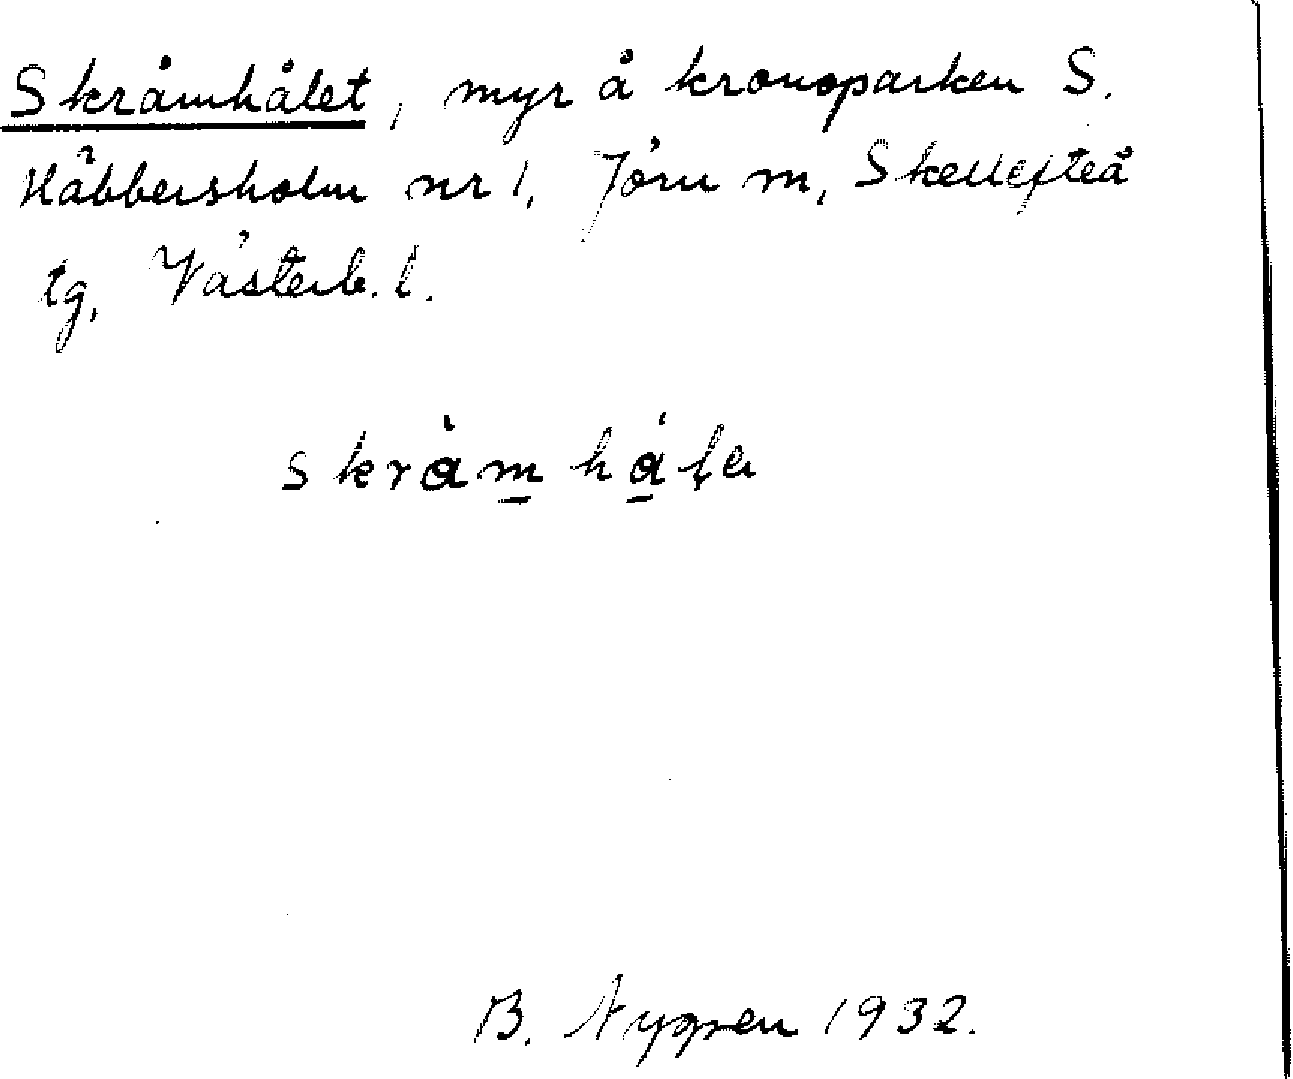 Skråmhålet, myr å kronoparken S.
Häbbersholm nr 1, Jörn sn, Skellefteå
tg, Västerb. l.
skråmhåɭɐ
B. Nygren 1932.